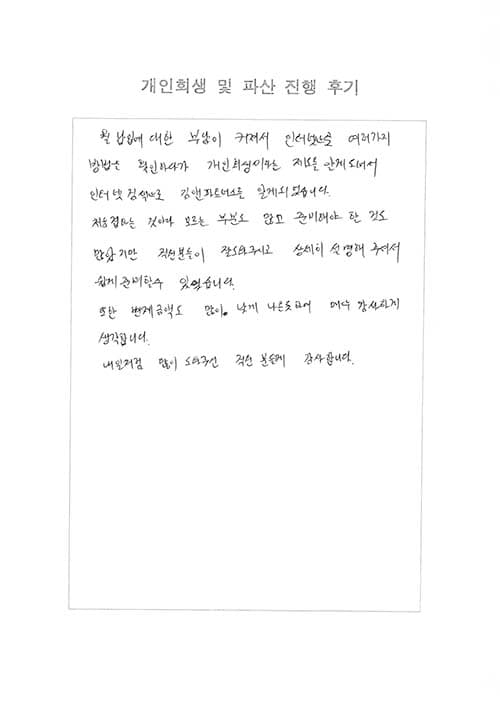 개인회생 및 파산 진행 후기
월 납입에 대한 부담이 커져서 인터넷으로 여러가지
방법을 확인하다가 개인회생이라는 제도를 알게되어서
인터넷 검색으로 김앤파트너스를 알게되었습니다.
처음접하는 것이라 모르는 부분도 많고 준비해야 할 것도
많았지만 직원분들이 잘도와주시고 상세히 설명해 주셔서
쉽게 준비할수 있었습니다.
또한 변제금액도 많이 낮게 나온듯하여 매우 감사하게
생각합니다.
내일처럼 많이 도와주신 직원 분들께 감사합니다.